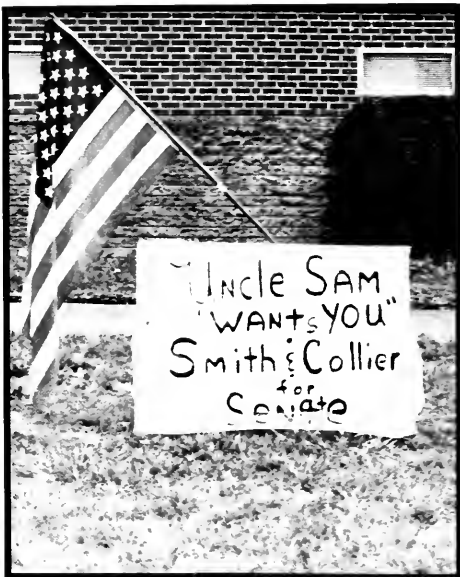 Uncle SAM
"WANTs YOU"
Smith & Collier
for
Senate